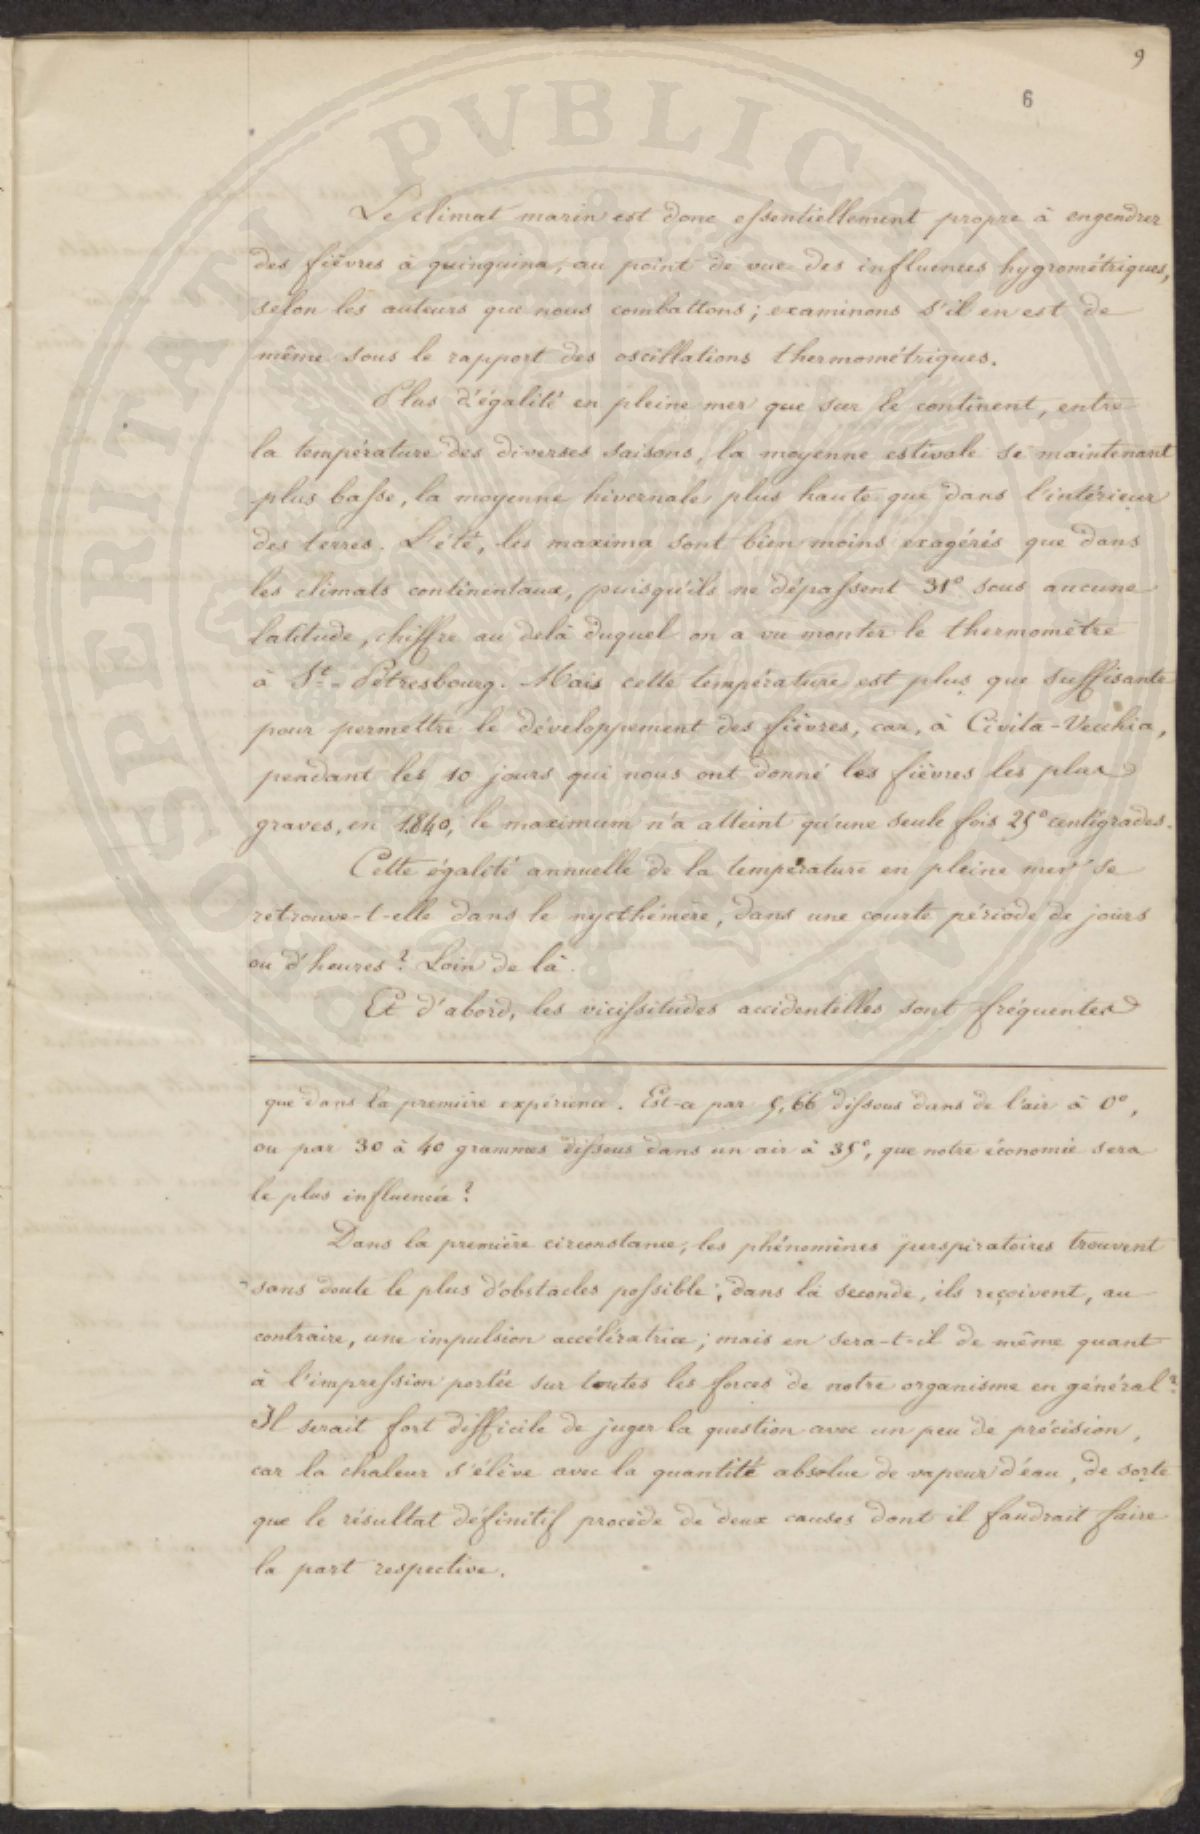 9
6
Le climat marin est donc essentiellement propre à engendrer
des fièvres à quinquina, au point de vue des influences hygrométriques,
selon les auteurs que nous combattons ; examinons s'il en est de
même sous le rapport des oscillations thermométriques.
Plus d'égalité en pleine mer que sur le continent, entre
la température des diverses saisons, la moyenne estivale se maintenant
plus basse, la moyenne hivernale plus haute que dans l'intérieur
des terres. L'été, les maxima sont bien moins exagérés que dans
les climats continentaux, puisqu'ils ne dépassent 31° sous aucune
latitude, chiffre au delà duquel on a vu monter le thermomètre
à St-Pétresbourg. Mais cette température est plus que suffisante
pour permettre le développement des fièvres, car, à Civita-Vecchia,
pendant les 10 jours qui nous ont donné les fièvres les plus
graves, en 1840, le maximum n'a atteint qu'une seule fois 25° centigrades.
Cette égalité annuelle de la température en pleine mer se
retrouve-t-elle dans le nycthémère, dans une courte période de jours
ou d'heures ? Loin de là.
Et d'abord, les vicissitudes accidentelles sont fréquentes
que dans la première expérience. Est-ce par 5,66 dissous dans de l'air à 0°,
ou par 30 à 40 grammes dissous dans un air à 35°, que notre économie sera
le plus influencée ?
Dans la première circonstance, les phénomènes perspiratoires trouvent
sans doute le plus d'obstacles possible ; dans la seconde, ils reçoivent, au
contraire, une impulsion accélératrice ; mais en sera-t-il de même quant
à l'impression portée sur toutes les forces de notre organisme en général ?
Il serait fort difficile de juger la question avec un peu de précision,
car la chaleur s'élève avec la quantité absolue de vapeur d'eau, de sorte
que le résultat définitif procède de deux causes dont il faudrait faire
la part respective.
PROSPERITATI PVBLICAE